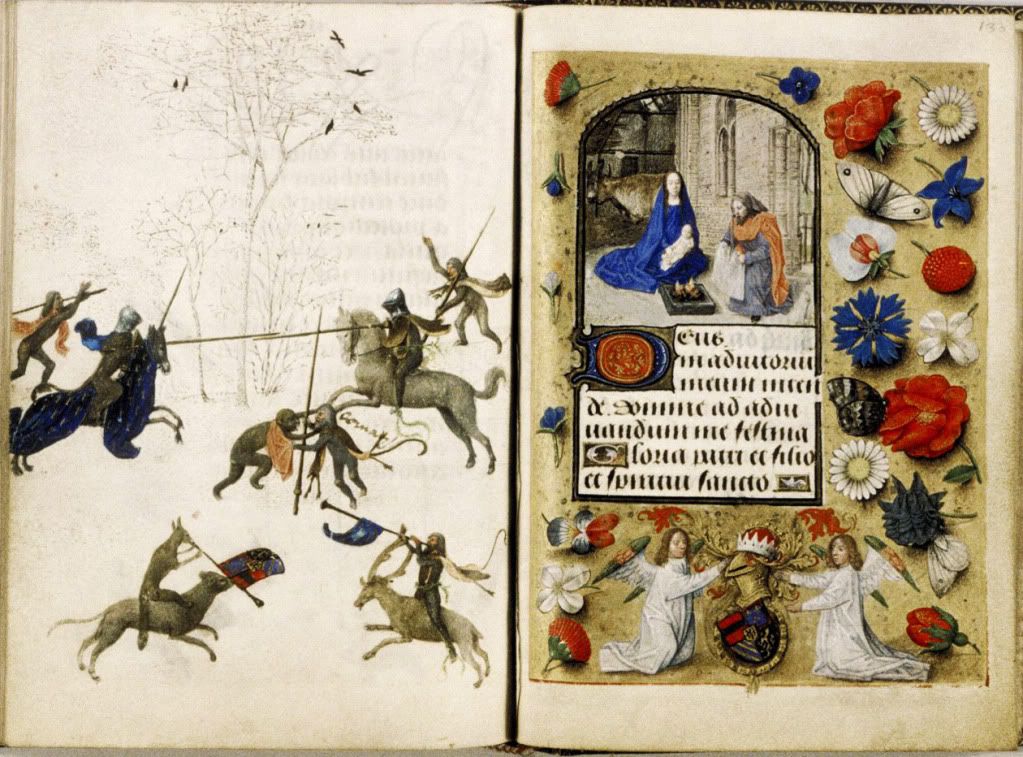 DEus
in adiutoriu
meum inten
de. Domine ad adiu
uandum me festina
Gloria patri et filio
et spiritui sancto